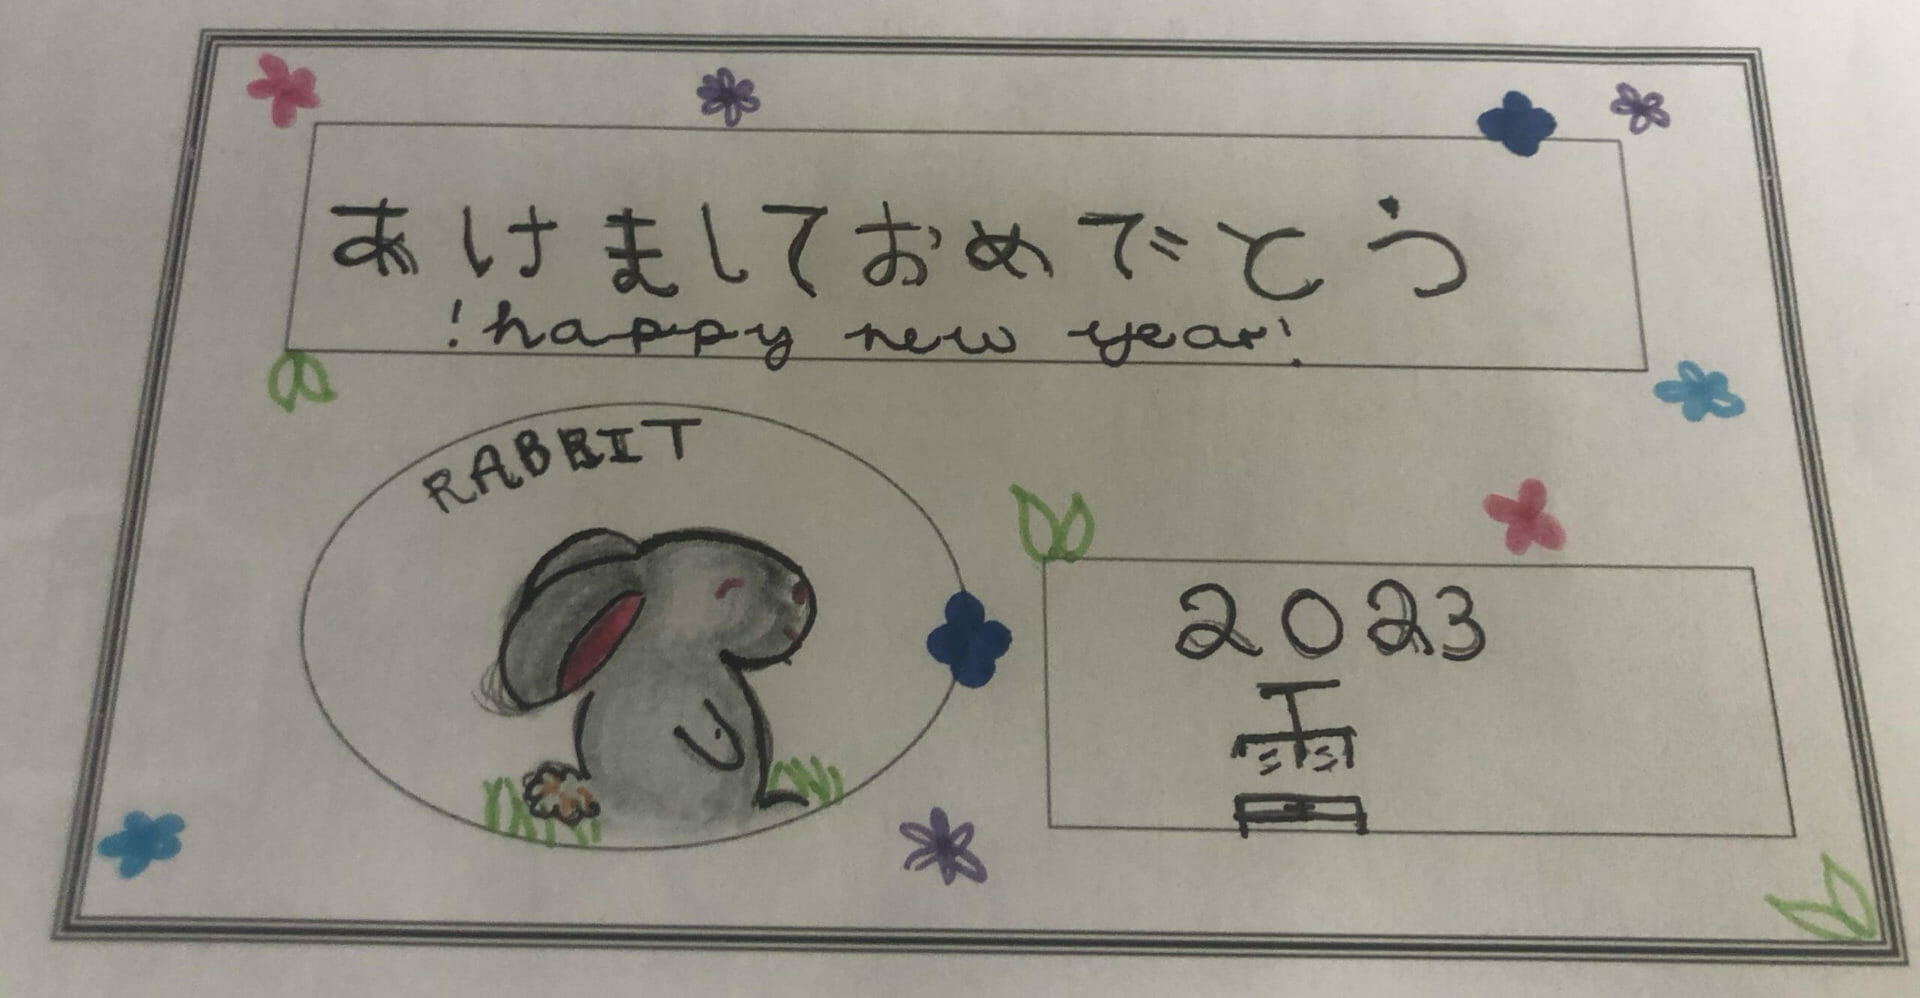 あけましておめでとう
!happy new year!
RABBIT
2023